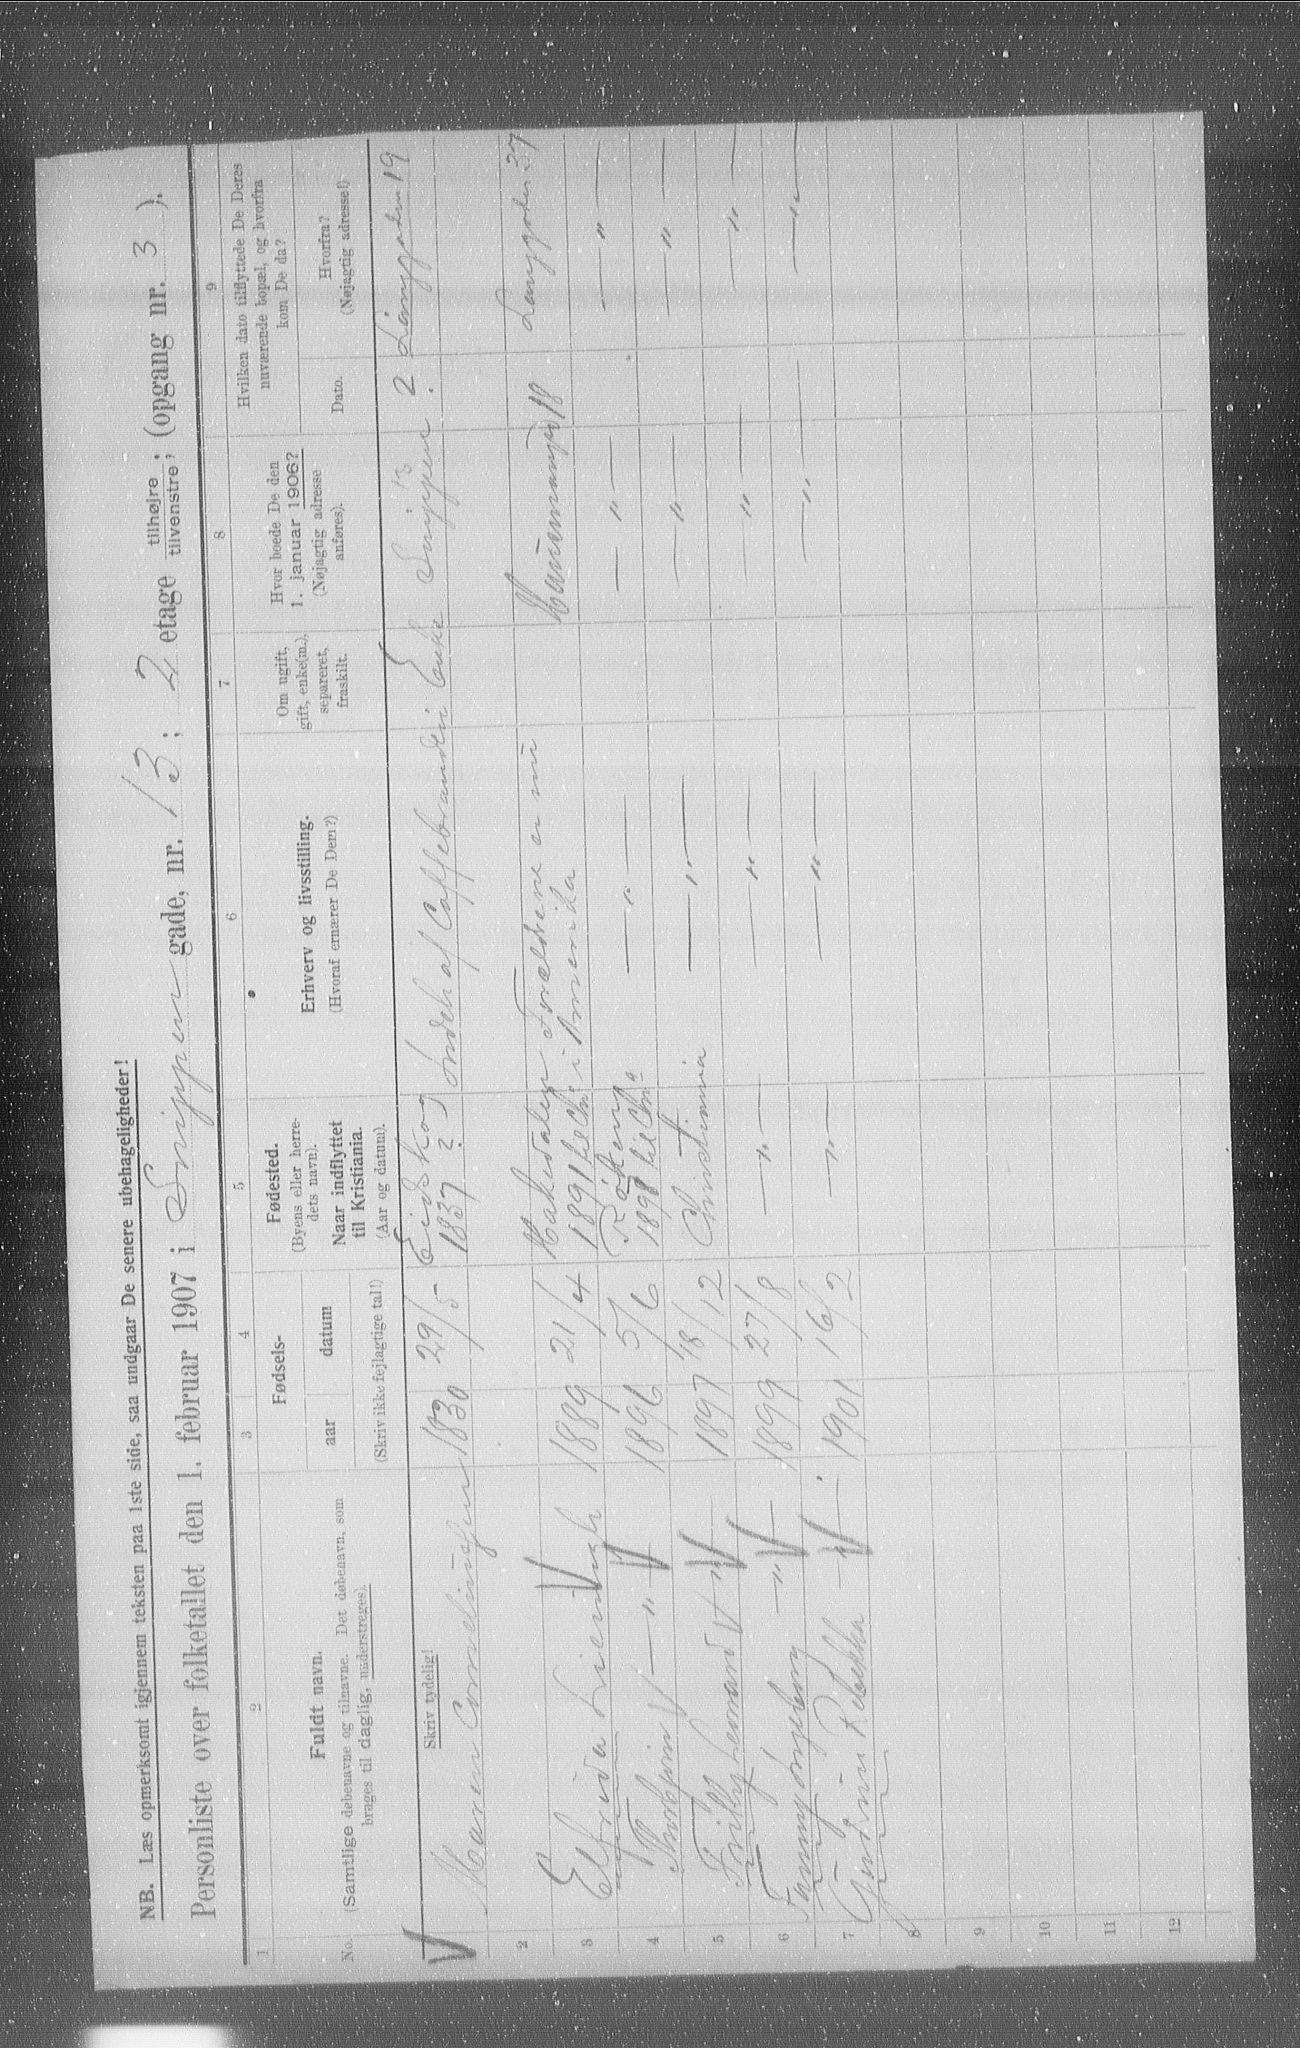 NB. Læs opmerksomt igjennem teksten paa 1ste side, saa undgaar De senere ubehageligheder!
Personliste over folketallet den 1. februar 1907 i Snippen gade, nr. 13; 2 etage tilhøjre, tilvenstre; (opgang nr. 3).
1 2 3 4 5 6 7 8 9
No.
Fuldt navn.
(Samtlige døbenavne og tilnavne. Det døbenavn, som
brages til daglig, understreges).
Fødsels-
aar datum
(Skriv ikke fejlagtige tal!)
Fødested.
(Byens eller herre-
dets navn).
Naar indflyttet
til Kristiania.
(Aar og datum).
Erhverv og livsstilling.
(Hvoraf ernærer De Dem?)
Om ugift,
gift, enke(m.),
separeret,
fraskilt.
Hvor boede De den
1. januar 1906?
(Nøjagtig adresse
anføres).
Hvilken dato tilflyttede De Deres
nuværende bopæl, og hvorfra
kom De da?
Dato.
Hvorfra?
(Nøjagtig adresse!)
Skriv tydelig!
Maren Corneliussen 1830 29/5 Eidskog 1837 ? Indeh af Caffebrænderi Enke Snippen 13 2 Langgaden 19
2
3 Elfrida 1889 21/4 Hakedalen 1891 Forældrene er nu i Amerika Hausmannsgd 18 Langgaden 37
4 Thorbjørn — " — 1896 5/6 Røken 1898 — " — — " — — " —
5 Fritz Leonard " 1897 18/12 Christiania — " — — " — — " —
6 Fanny Ingeborg — " — 1899 27/8 — " — — " — — " — — " —
7 Gudrun Rebekka " 1901 16/2 — " — — " — — " — — " —
8
9
10
11
12